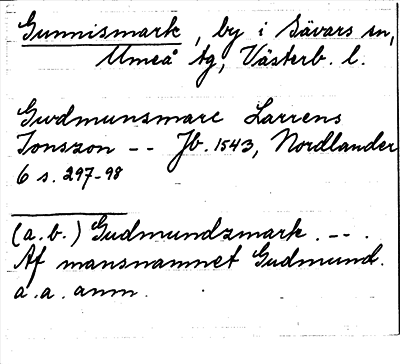 Gunnismark, by i Sävars sn,
Umeå tg, Västerb. l.
Gwdmunsmarc Larrens
Jonszon -- Jb. 1543, Nordlander
6 s. 297-98
(a.b.) Gudmundzmark. --.
Af mansnamnet Gudmund.
a.a. anm.